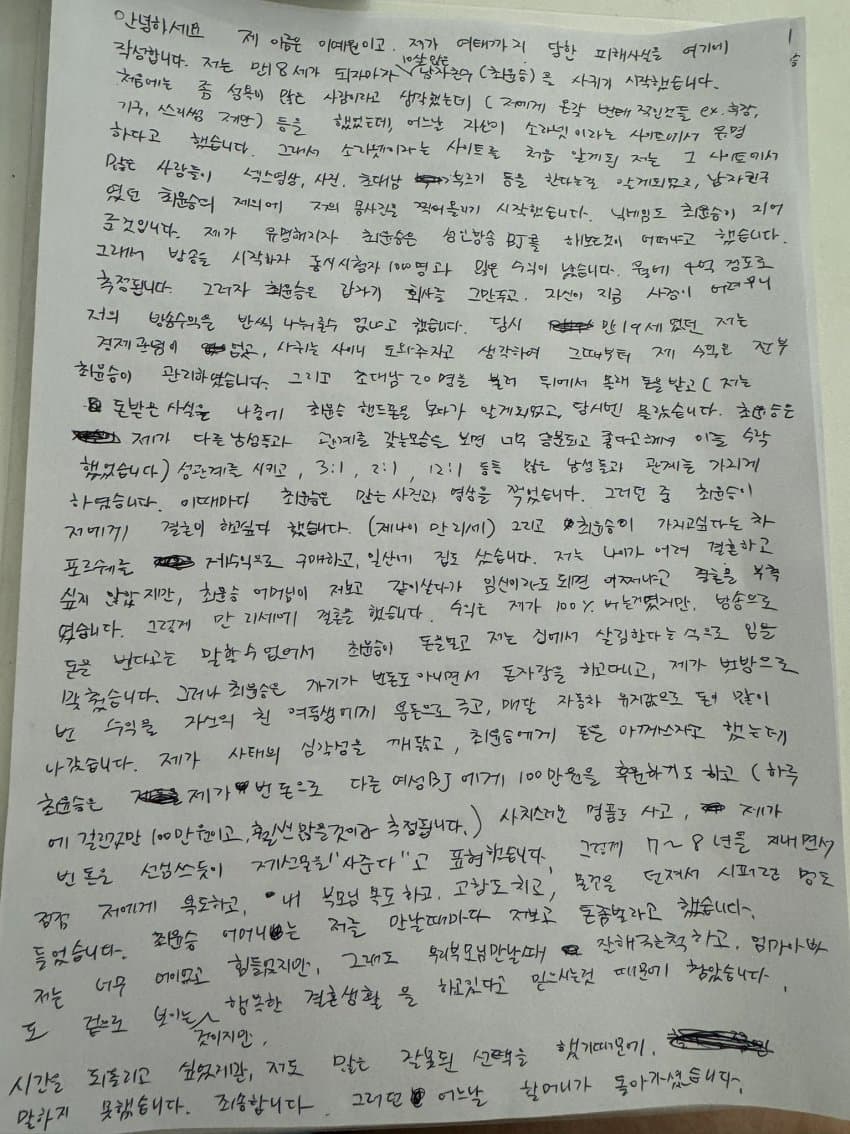 1
안녕하세요 제 이름은 이예원이고. 저가 여태까지 당한 피해사실을 여기에
작성합니다. 저는 만18세가 되자마자 10살많은 남자친구(최윤승)를 사귀기 시작했습니다.
처음에는 좀 성욕이 많은 사람이라고 생각했는데 (저에게 온갖 변태적인것들 ex.
기구, 쓰리썸 제안) 등을 했었는데, 어느날 자신이 소라넷이라는 사이트에서 유명
하다고 했습니다. 그래서 소라넷이라는 사이트를 처음 알게된 저는 그 사이트에서
많은 사람들이 섹스영상, 사진, 초대남 부르기 등을 한다는걸 알게되었고, 남자친구
였던 최윤승의 제의에 저의 몸사진을 찍어올리기 시작했습니다. 닉네임도 최윤승이 지어
준것입니다. 제가 유명해지자 최윤승은 성인방송 BJ를 해보는것이 어떠냐고 했습니다.
그래서 방송을 시작하자 동시시청자 1000명과 많은 수익이 났습니다. 월에 4억 정도로
측정됩니다. 그러자 최윤승은 갑자기 회사를 그만두고, 자신이 지금 사정이 어려우니
저의 방송수익을 반씩 나눠줄수 없냐고 했습니다. 당시 만19세였던 저는
경제관념이 없고, 사귀는 사이니 도와주자고 생각하여 그때부터 제 수익은 전부
최윤승이 관리하였습니다. 그리고 초대남 20명을 불러 뒤에서 몰래 돈을 받고 (저는
돈받은 사실을 나중에 최윤승 핸드폰을 보다가 알게되었고, 당시엔 몰랐습니다. 최윤승은
제가 다른남성들과 관계를 갖는모습을 보면 너무 흥분되고 좋다고해서 이를 수락
했었습니다) 성관계를 시키고, 3:1, 2:1, 12:1 등등 많은 남성들과 관계를 가지게
하였습니다. 이때마다 최윤승은 많은 사진과 영상을 찍었습니다. 그러던 중 최윤승이
저에게 결혼이 하고싶다 했습니다. (제나이 만21세) 그리고 최윤승이 가지고싶다는 차
포르쉐를 제수익으로 구매하고, 일산에 집도 샀습니다. 저는 나이가 어려 결혼하고
싶지 않았지만, 최윤승 어머님이 저보고 같이살다가 임신이라도 되면 어쩌냐고 결혼을 부추
겼습니다. 그렇게 만 21세에 결혼을 했습니다. 수익은 제가 100% 버는거였지만, 방송으로
돈을 번다고는 말할수 없어서 최윤승이 돈을벌고 저는 집에서 살림한다는 식으로 입을
맞췄습니다. 그러나 최윤승은 자기가 번돈도 아니면서 돈자랑을 하고다니고, 제가 벗방으로
번 수익을 자신의 친 여동생에게 용돈으로 주고, 매달 자동차 유지값으로 돈이 많이
나갔습니다. 제가 사태의 심각성을 깨닫고, 최윤승에게 돈을 아껴쓰자고 했는데
최윤승은 제가 번돈으로 다른 여성BJ에게 100만원을 후원하기도 하고 (하루
에 걸린것만 100만원이고, 훨씬 많을것이라 측정됩니다.) 사치스러운 명품도 사고, 제가
번 돈을 선심쓰듯이 제선물을 "사준다"고 표현했습니다. 그렇게 7~8년을 지내면서
점점 저에게 욕도하고, 내 부모님 욕도 하고, 고함도 치고, 물건을 던져서 시퍼런 멍도
들었습니다. 최윤승 어머니는 저를 만날때마다 저보고 돈좀벌라고 했습니다.
저는 너무 어이없고 힘들었지만, 그래도 우리부모님만날때 잘해주는척하고, 엄마아빠
도 겉으로 보이는것이지만, 행복한 결혼생활을 하고있다고 믿으시는것 때문에 참았습니다.
시간을 되돌리고 싶었지만, 저도 많은 잘못된 선택을 했기때문에,
말하지 못했습니다. 죄송합니다. 그러던 어느날 할머니가 돌아가셨습니다.